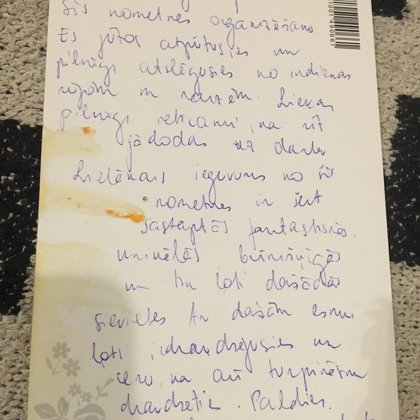 šīs nometnes organizēšano
Es jūtos atpūtusies un
pilnīgi atslēgusies no ikdienas
rūpēm un raizēm. Liekas
pilnīgi neticami, ka rīt
jādodas uz darbu
Lielākais ieguvums no šīs
nometnes ir šeit
sastaptās fantastiskās,
unikālās, burvīgās
un tik ļoti dažādās
sievietes. Ar dažām esmu
ļoti iedraudzējusies un
ceru, ka arī turpināsim
draudzēties. Paldies.